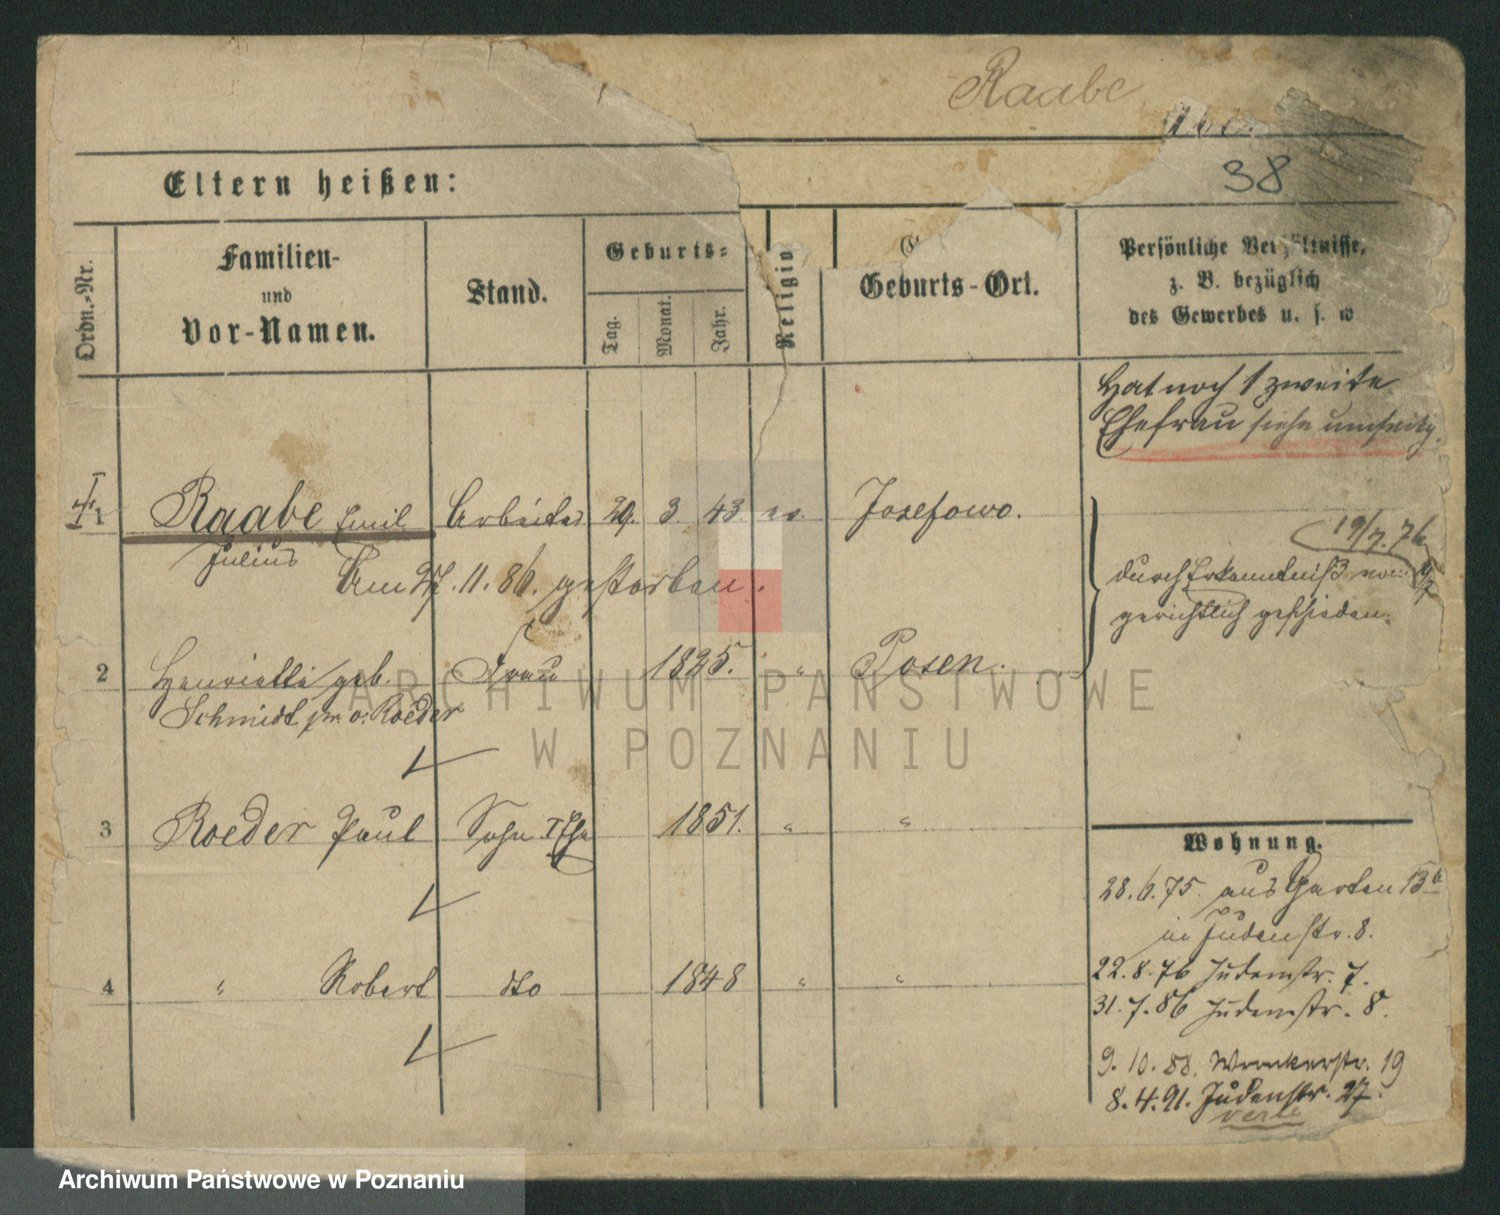 Raabe
38
Eltern heißen:
Ordn.-Nr.
Familien-
und
Vor-Namen.
Stand.
Geburts-
Tag.
Monat.
Jahr.
Religio
Geburts-Ort.
Persönliche Verhältnisse,
z. B. bezüglich
des Gewerbes u. s. w
Hat noch 1 zweite
Ehefrau siehe umseitig.
1 Raabe Emil Arbeiter 29. 3. 43. ev. Josefowo.
Julius
Am 27. 11. 86. gestorben.
19/7. 76
durch Erkenntniß vom
gerichtlich geschieden.
2 Henriette geb. Frau 1825. " Posen.
Schmidt pr. v. Roeder
3 Roeder Paul Sohn I Ehe 1851. " "
4 " Robert dto 1848 " "
Wohnung.
28. 6. 75. aus Garten 13b
in Judenstr. 8.
22. 8. 76 Judenstr. 7.
31. 7. 86 Judenstr. 8.
9. 10. 88. Wronkerstr. 19
8. 4. 91. Judenstr. 27.
ARCHIWUM PAŃSTWOWE
W POZNANIU
Archiwum Państwowe w Poznaniu